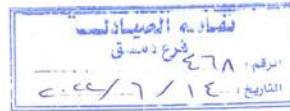 نقابة الصيادلة
فرع دمشق
الرقم: ٤٦٨
التاريخ: ١٤ / ٦ / ٢٠٢٢